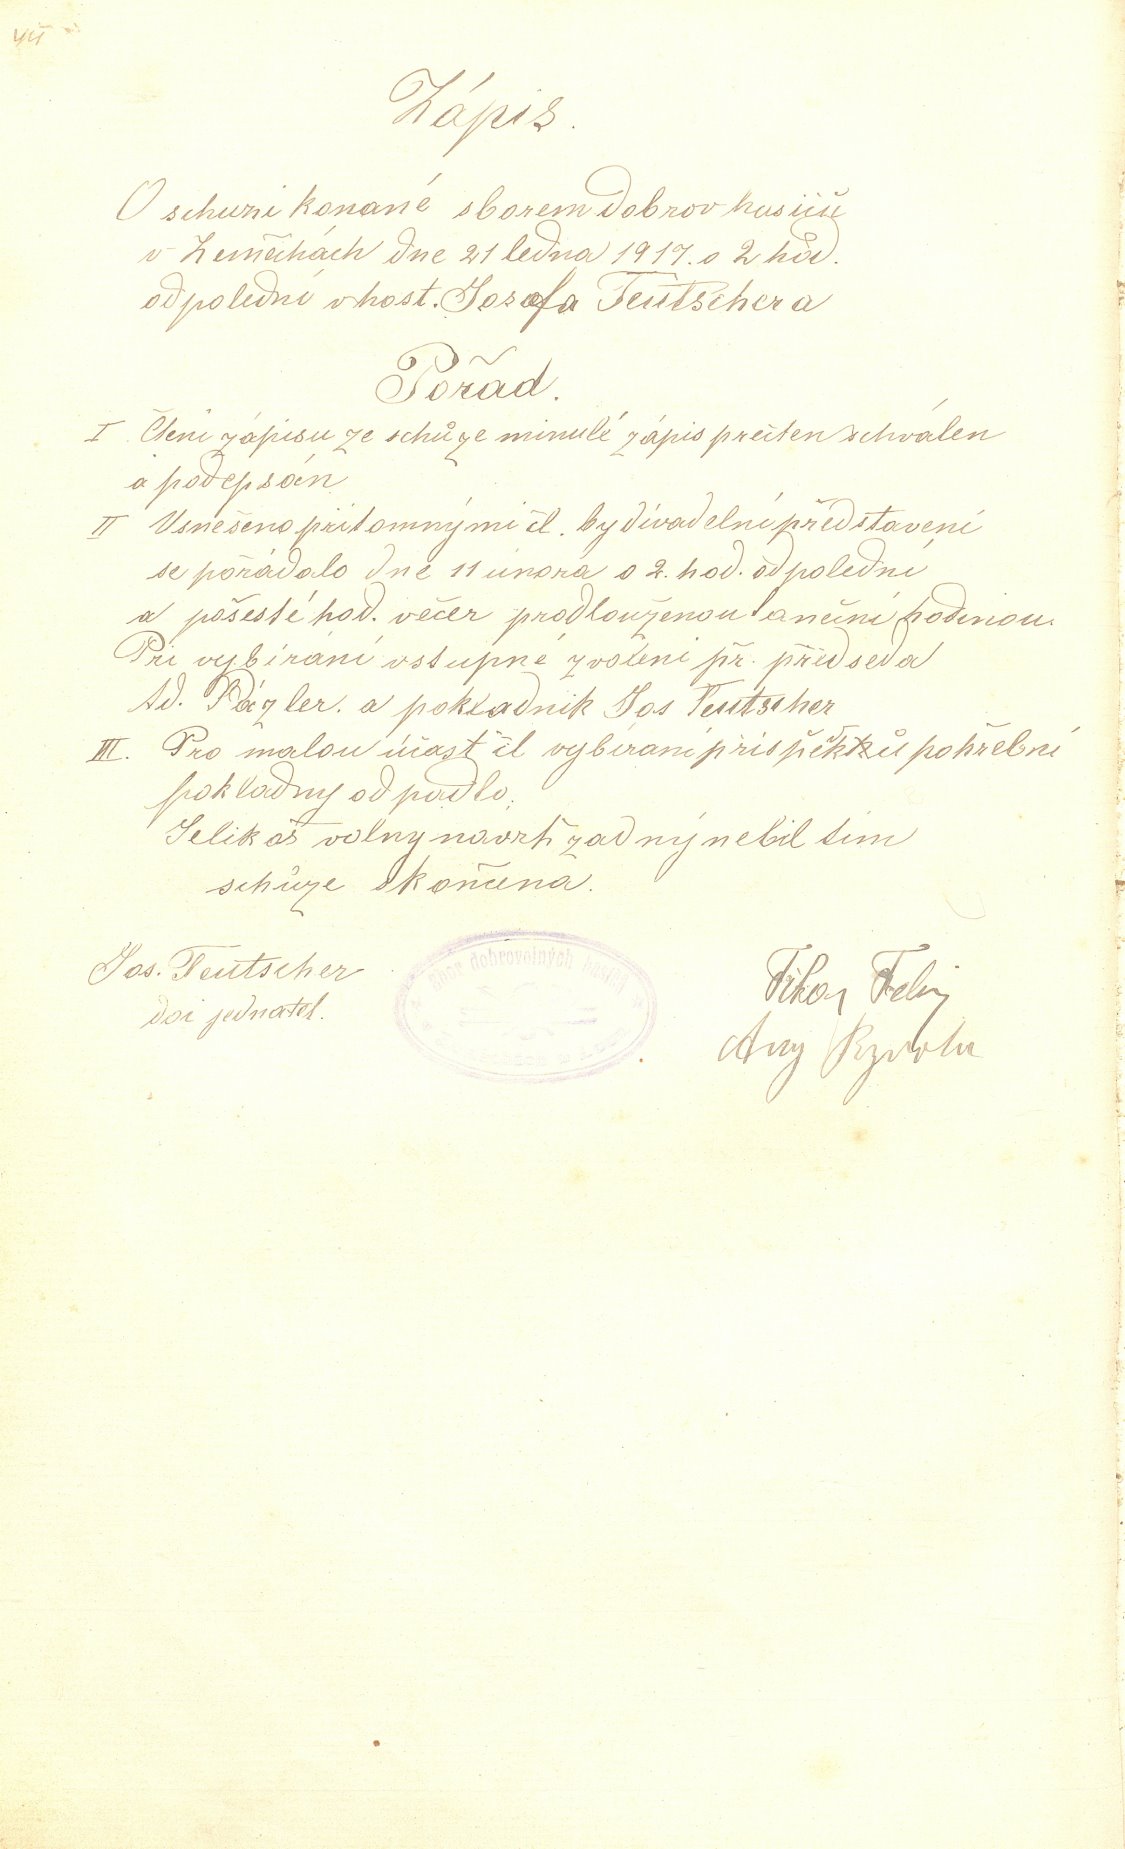 Zápis.
O schuzi konané sborem dobrov hasičů
v Zemčchách dne 21 ledna 1917. o 2 hod.
odpoledni v host. Josefa Teutschera
Pořad.
I Čteni zápisu ze schůze minulé zápis prečten schválen
a podepsán
II Usnešeno přitomnými čl. by divadelní představení
se pořádalo dne 11 února o 2. hod. odpolední
a pošesté hod. večer prodlouženou taneční hodinou.
Při vybíráni vstupné zvoleni př. předseda
Ad. Pázler. a pokladnik Jos Teutscher
III. Pro malou účast čl vybíraní přispěvků pohřební
pokladny odpadlo.
Jelikoš volny navrh žadný nebil tím
schůze skončena.
Jos. Teutscher
jednatel.
Sbor dobrovolných hasičů